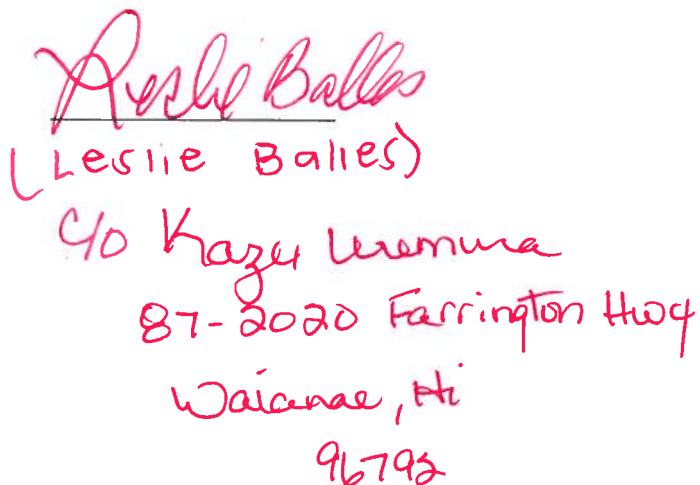 Leslie Balles
(Leslie Balles)
C/o Kazu Uemura
87-2020 Farrington Hwy
Waianae, Hi
96792